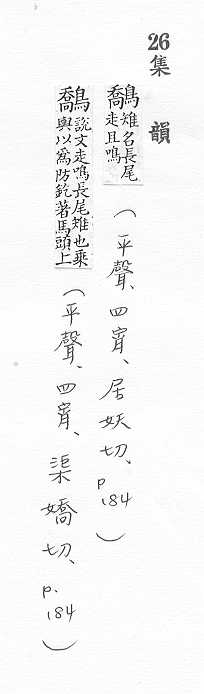 26集韻
鷮雉名長尾走且鳴(平聲、四宵、居妖切、p.184)
鷮說文走鳴長尾雉也乘輿以為防釳著馬頭上(平聲、四宵、渠嬌切、p.184)